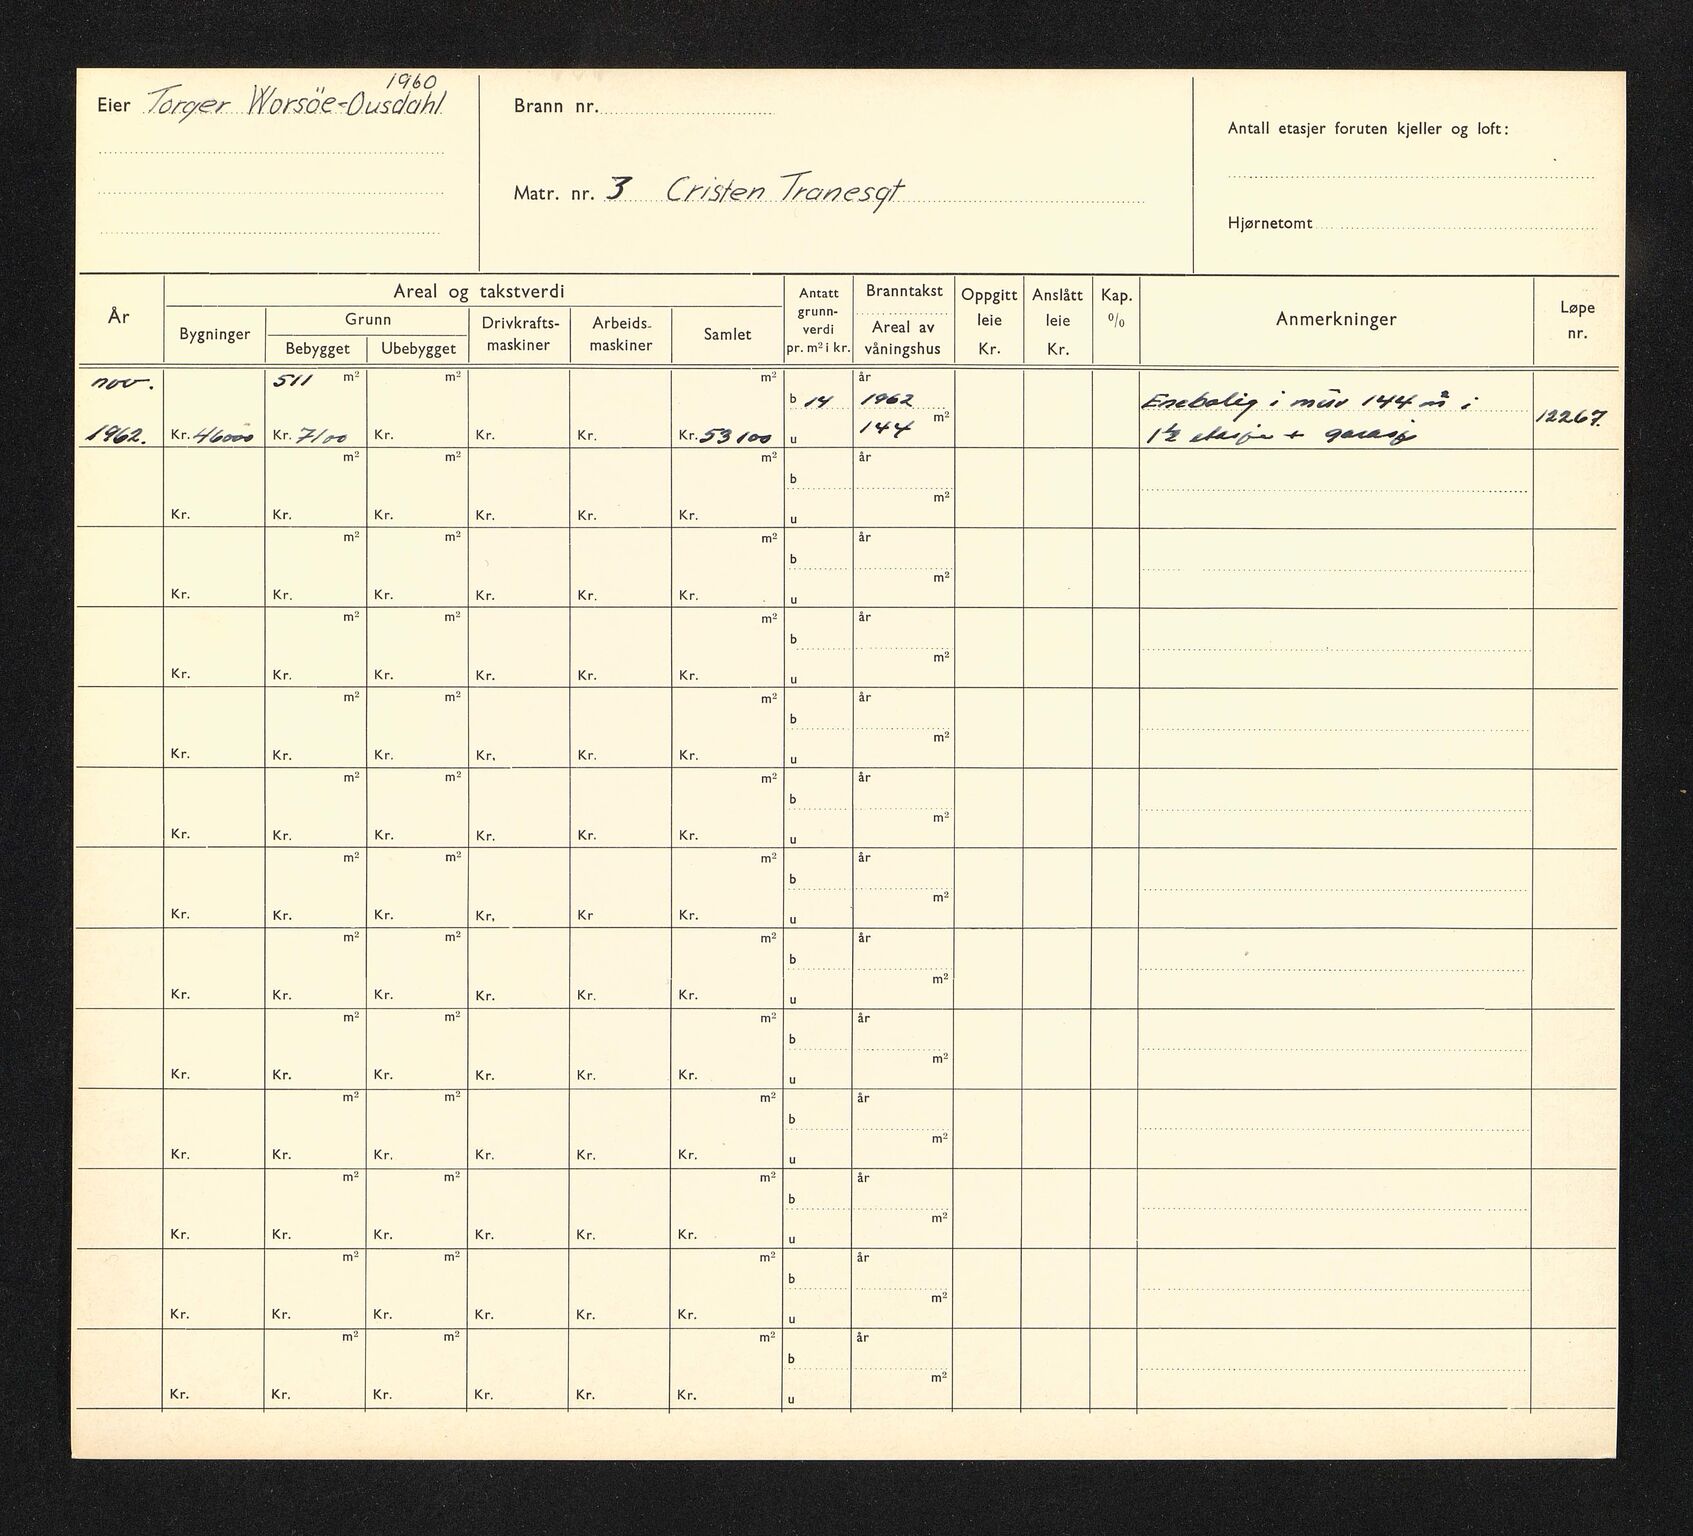 1960
Eier Torger Worsöe-Ousdahl
Brann nr.
Matr. nr. 3 Cristen Tranesgt
Antall etasjer foruten kjeller og loft:
Hjørnetomt
År
Areal og takstverdi
Bygninger
Grunn
Bebygget Ubebygget
Drivkrafts-
maskiner
Arbeids-
maskiner
Samlet
Antatt
grunn-
verdi
pr. m² i kr.
Branntakst
Areal av
våningshus
Oppgitt
leie
Kr.
Anslått
leie
Kr.
Kap.
%
Anmerkninger
Løpe
nr.
nov. 511 m² m² m² år
b 14 1962 Enebolig i mur 144 m² i
m² 12267.
1962. Kr. 46000 Kr. 7100 Kr. Kr. Kr. Kr. 53100 u 144 1½ etasje + garasje
m² m² m² år
b
m²
Kr. Kr. Kr. Kr. Kr. Kr. u
m² m² m² år
b
m²
Kr. Kr. Kr. Kr. Kr. Kr. u
m² m² m² år
b
m²
Kr. Kr. Kr. Kr. Kr. Kr. u
m² m² m² år
b
m²
Kr. Kr. Kr. Kr. Kr. Kr. u
m² m² m² år
b
m²
Kr. Kr. Kr. Kr. Kr. Kr. u
m² m² m² år
b
m²
Kr. Kr. Kr. Kr. Kr Kr. u
m² m² m² år
b
m²
Kr. Kr. Kr. Kr. Kr. Kr. u
m² m² m² år
b
m²
Kr. Kr. Kr. Kr. Kr. Kr. u
m² m² m² år
b
m²
Kr. Kr. Kr. Kr. Kr. Kr. u
m² m² m² år
b
m²
Kr. Kr. Kr. Kr. Kr. Kr. u
m² m² m² år
b
m²
Kr. Kr. Kr. Kr. Kr. Kr. u
m² m² m² år
b
m²
Kr. Kr. Kr. Kr. Kr. Kr. u